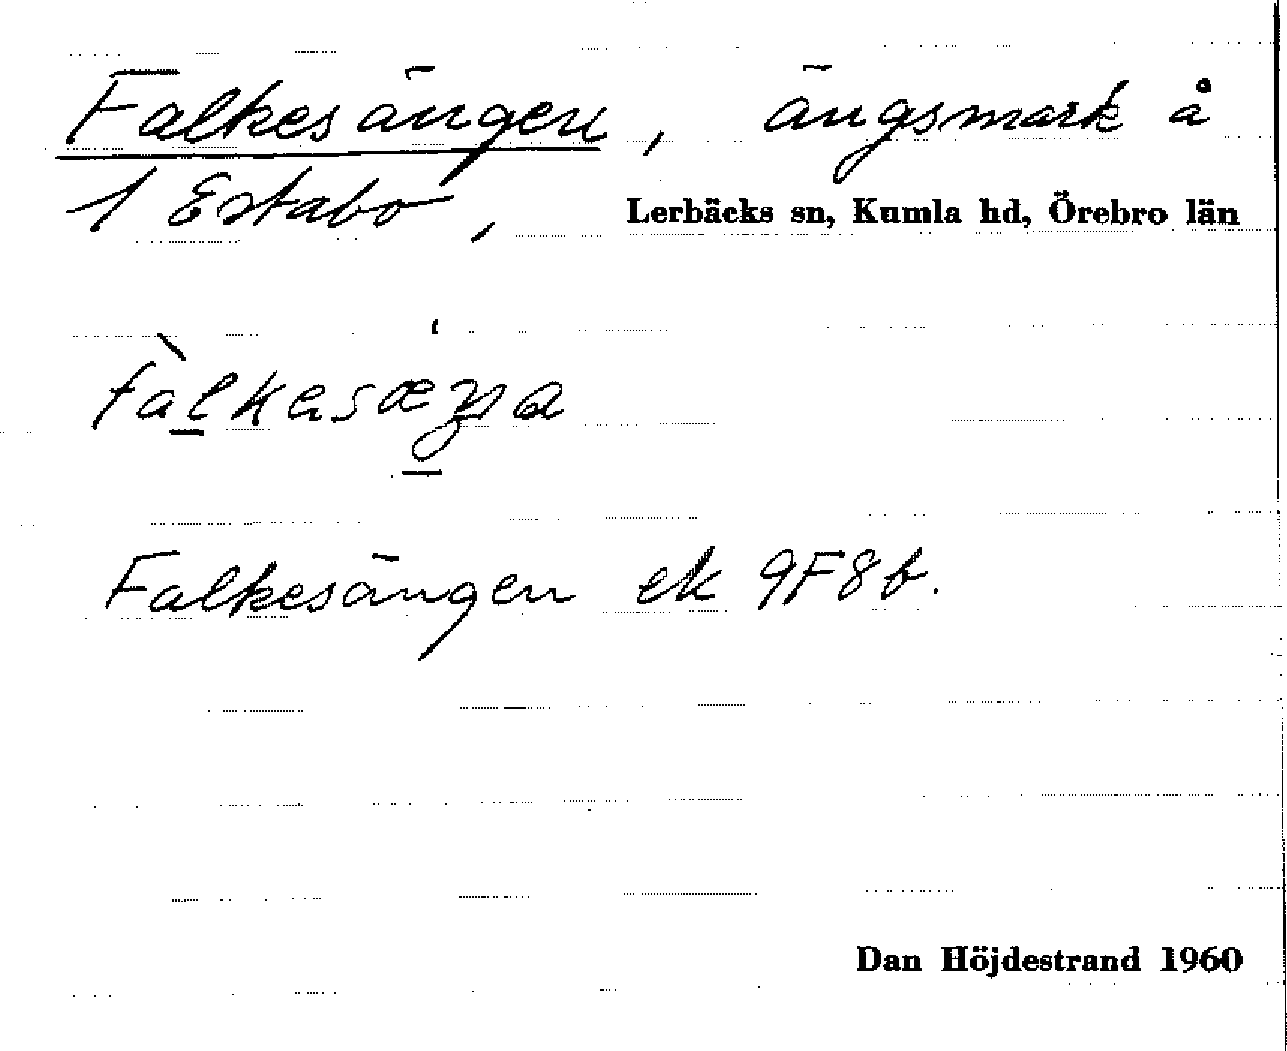 Falkesängen, ängsmark å
1 Estabo, Lerbäcks sn, Kumla hd, Örebro län
Falkesängen ek 9F8b.
Dan Höjdestrand 1960